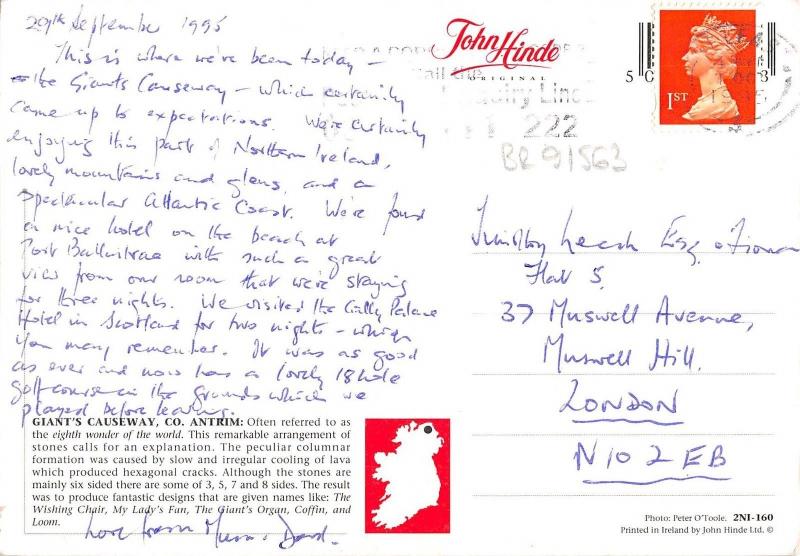 29th September 1995
This is where we've been today –
the Giants Causeway – which certainly
came up to expectations. We're certainly
enjoying this part of Northern Ireland,
lovely mountains and glens, and a
spectacular Atlantic Coast. We've found
a nice hotel on the beach at
Port Ballintrae with such a great
view from our room that we're staying
for three nights. We visited the Cally Palace
Hotel in Scotland for two nights – which
you may remember. It was as good
as ever and now has a lovely 18 hole
golf course in the grounds which we
played before leaving.
GIANT'S CAUSEWAY, CO. ANTRIM: Often referred to as
the eighth wonder of the world. This remarkable arrangement of
stones calls for an explanation. The peculiar columnar
formation was caused by slow and irregular cooling of lava
which produced hexagonal cracks. Although the stones are
mainly six sided there are some of 3, 5, 7 and 8 sides. The result
was to produce fantastic designs that are given names like: The
Wishing Chair, My Lady's Fan, The Giant's Organ, Coffin, and
Loom.
Love from Mum & Dad.
John Hinde
ORIGINAL
1ST
222
BR91563
Timothy Leach Esq & Fiona
Flat 5,
37 Muswell Avenue,
Muswell Hill.
LONDON
N10 2EB
Photo: Peter O'Toole. 2NI-160
Printed in Ireland by John Hinde Ltd. ©